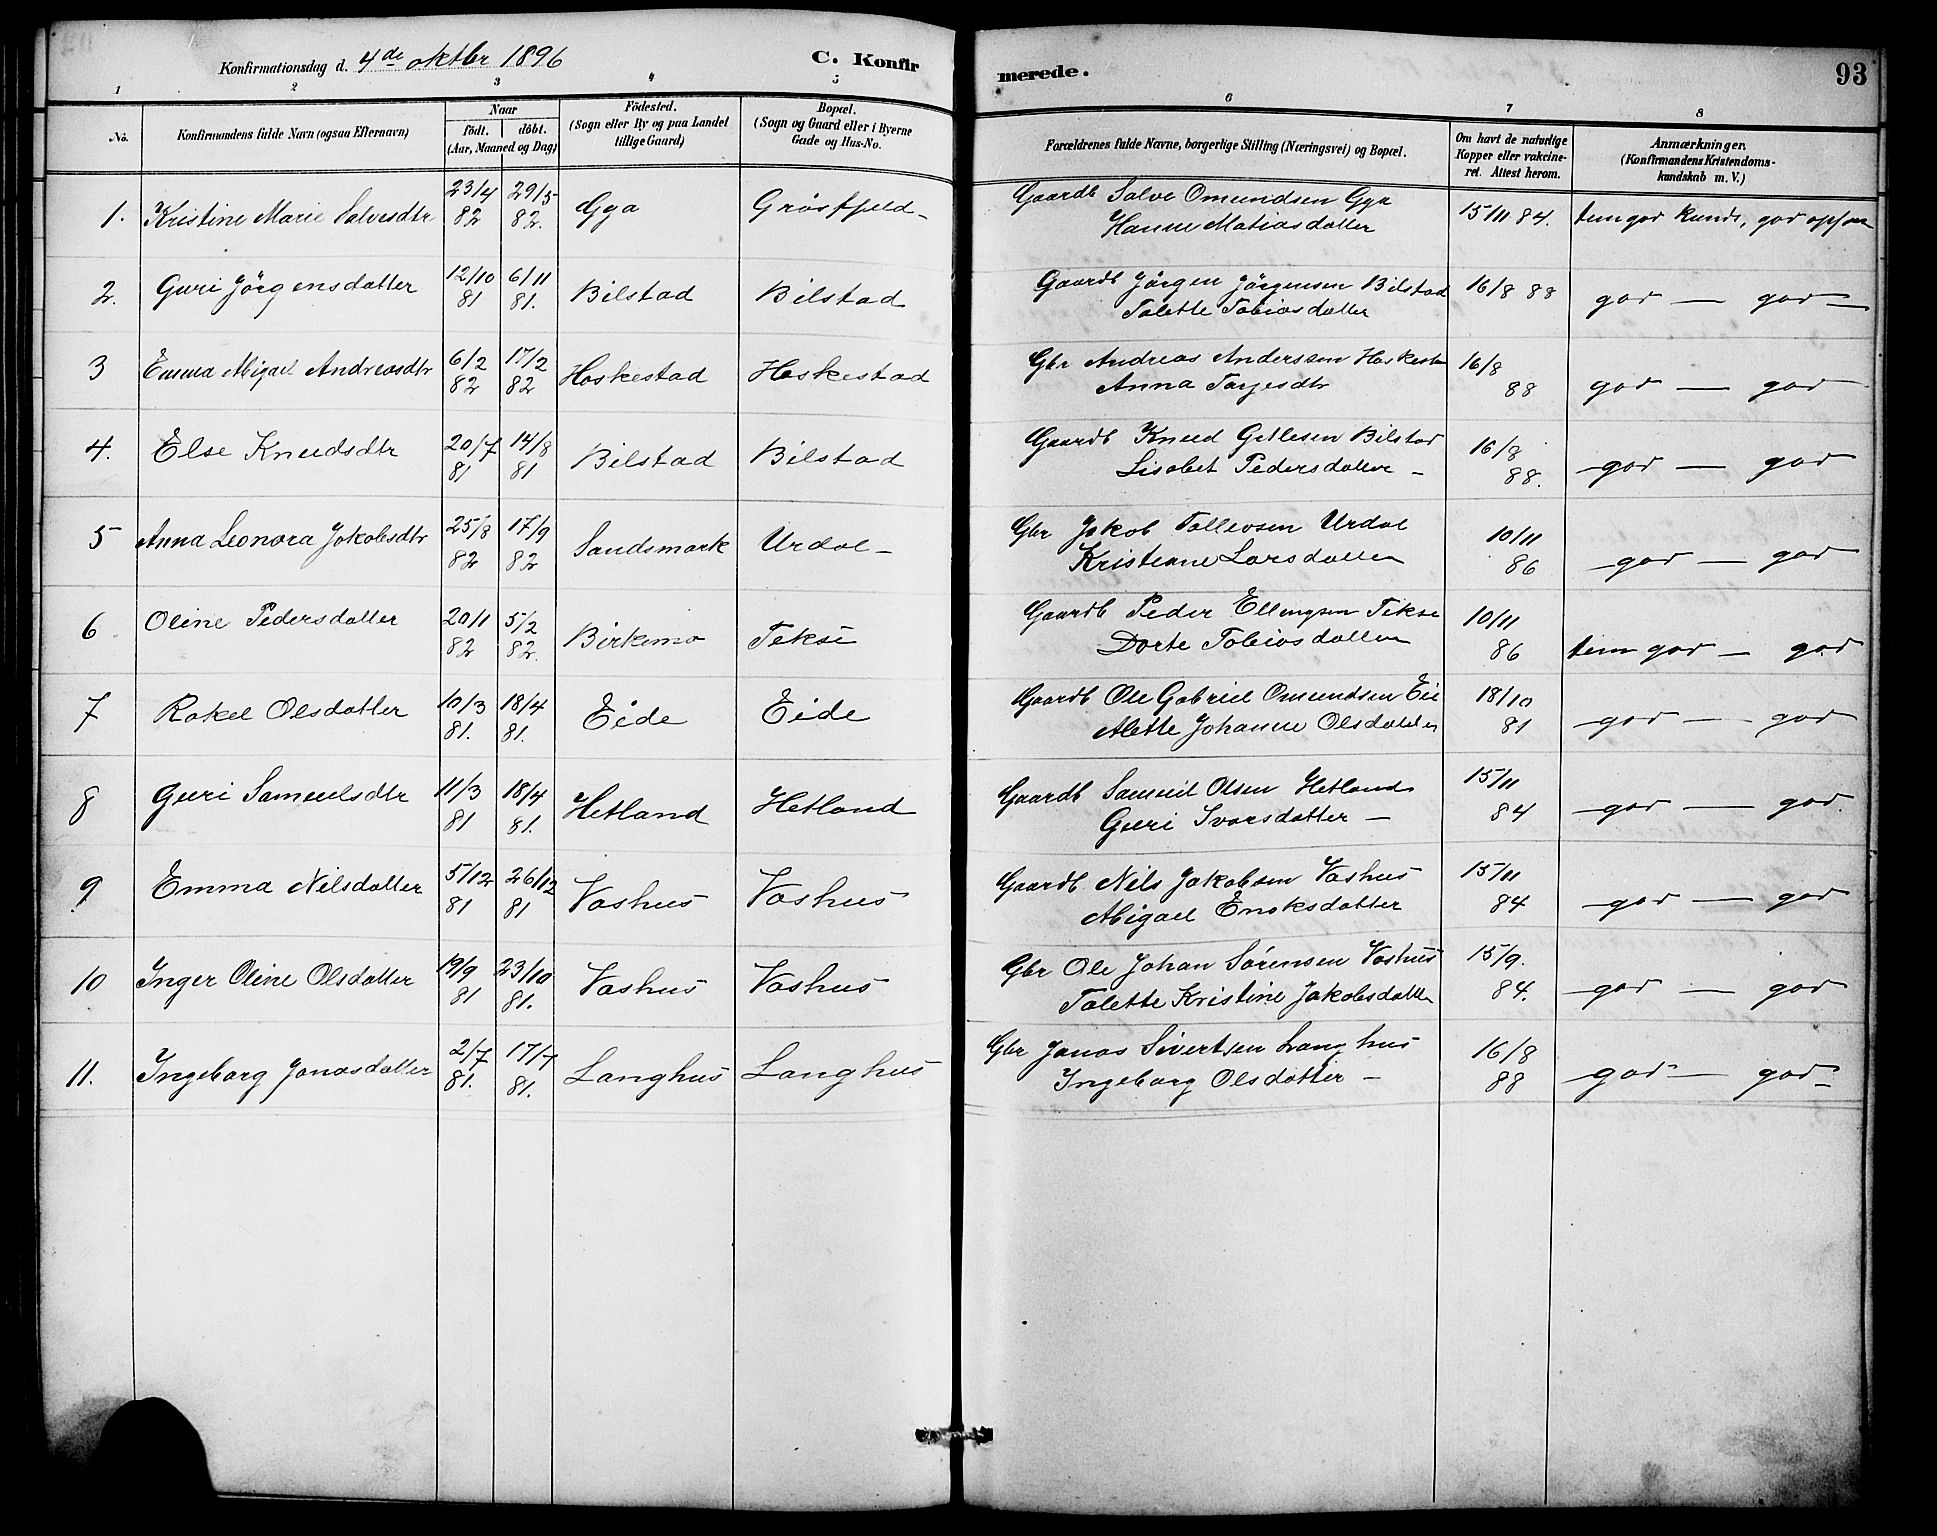 Konfirmationsdag d. 4de oktbr 1896
C. Konfirmerede.
93
1 2 3 4 5 6 7 8
No.
Konfirmandens fulde Navn (ogsaa Efternavn)
Naar
født. | döbt.
(Aar, Maaned og Dag)
Födested.
(Sogn eller By og paa Landet
tillige Gaard)
Bopæl.
(Sogn og Gaard eller i Byerne
Gade og Hus-No.
Forældrenes fulde Navne, borgerlige Stilling (Næringsvei) og Bopæl.
Om havt de naturlige
Kopper eller vakcine-
ret. Attest herom.
Anmærkninger.
(Konfirmandens Kristendoms-
kundskab m. V.)
1. Kristine Marie Salvesdtr 23/4 82 29/5 82. Gya Gröstfjeld - Gaardb Salve Omundsen Gya 15/11 84. tem god kundsk, god opf
Hanne Matiasdatter
2. Guri Jörgensdatter 12/10 81 6/11 81. Bilstad Bilstad Gaardb Jörgen Jörgensen Bilstad 16/8 88 god — god —
Talette Tobiasdatter
3 Emma Abigael Andreasdtr 6/2 82 17/2 82 Haskestad Haskestad Gbr Andreas Anderssen Haskesta 16/8 88 god — god
Anna Targesdtr
4. Else Knudsdtr 20/7 81 14/8 81 Bilstad Bilstad Gaardb Knud Gitlesen Bilstad 16/8 88. god — god
Lisabet Pedersdatter -
5 Anna Leonora Jakobsdtr 25/8 82 17/9 82 Sandsmark Urdal - Gbr Jakob Tollevsen Urdal 10/11 86 god — god
Kristiane Larsdatter
6 Oline Pedersdatter 20/1 82 5/2 82. Birkemo Tekse Gaardb Peder Ellingsen Tekse 10/11 86 tem god — god
Dorte Tobiasdatter
7 Rakel Olsdatter 10/3 81. 18/4 81. Eide Eide Gaardb Ole Gabriel Omundsen Eie 18/10 81 god — god
Alette Johanne Olsdatter
8 Guri Samuelsdtr 11/3 81 18/4 81. Hetland Hetland Gaardb Samuel Olsen Hetland 15/11 84 god — god.
Guri Ivarsdatter -
9 Emma Nilsdatter 5/12 81 26/12 81 Vashus Vashus Gaardb Nils Jakobsen Vashus 15/11 84 god — god
Abigael Enoksdatter
10 Inger Oline Olsdatter 19/9 81 23/10 81. Vashus Vashus Gbr Ole Johan Sörensen Vashus 15/9. 84. god — god
Talette Kristine Jakobsdatter
11. Ingeborg Jonasdatter 2/7 81. 17/7 81. Langhus Langhus Gbr Jonas Sivertsen Langhus 16/8 88 god — god -
Ingeborg Olsdatter -